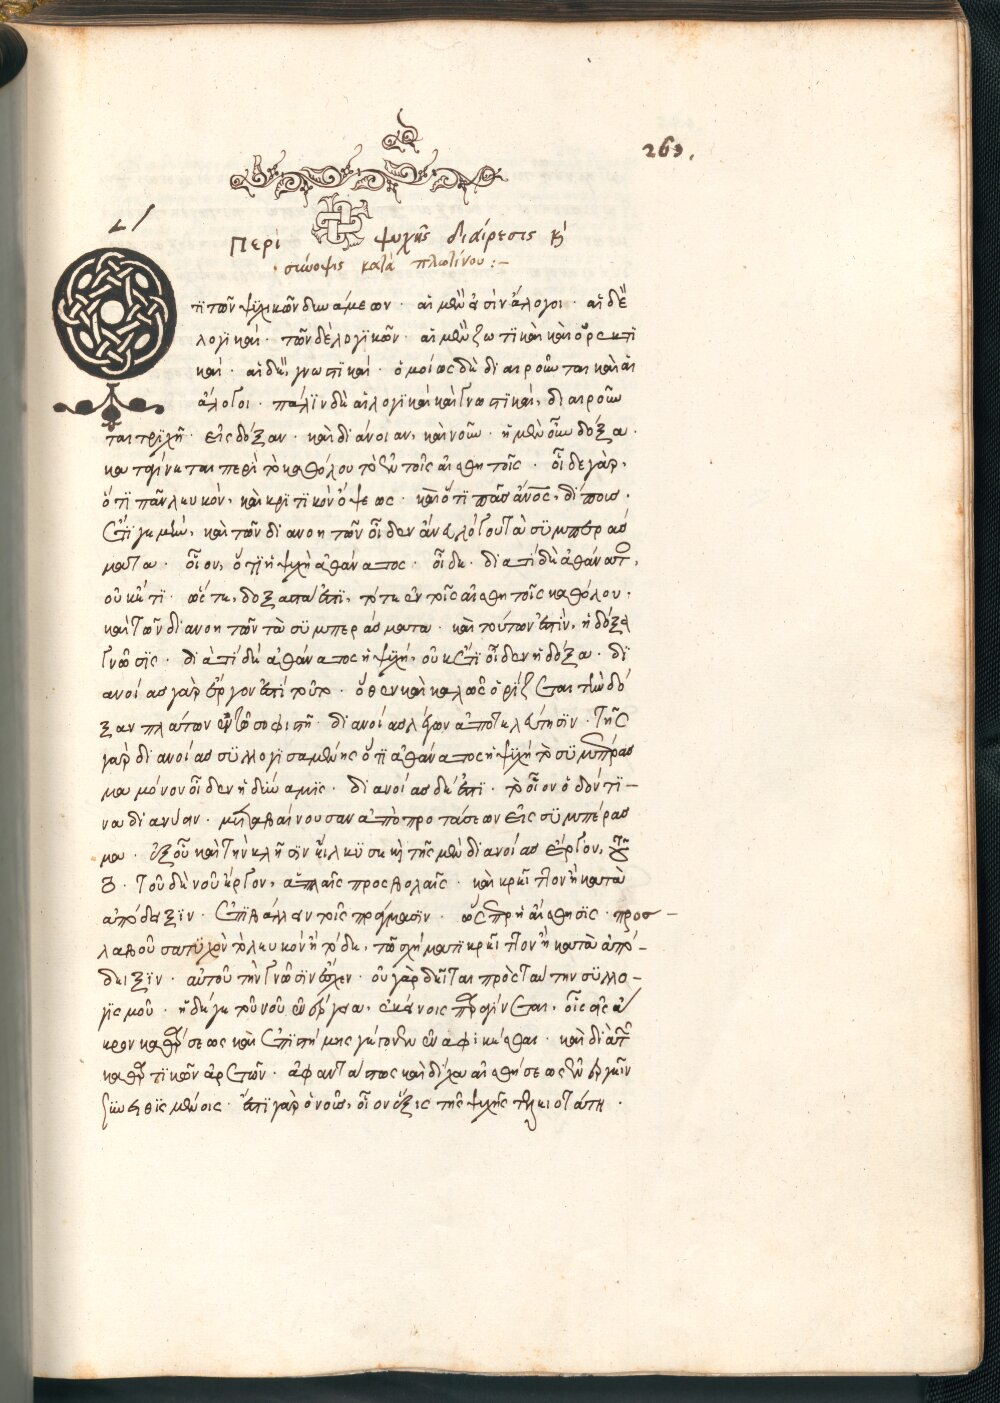 269.
Περὶ ψυχῆς διαίρεσις κ̀
σύνοψις κατὰ πλωτίνου :–
Ὅτι τῶν ψυχικῶν δυνάμεων · αἱ μὲν εἰσὶν ἄλογοι · αἱ δὲ
λογικαί · τῶν δὲ λογικῶν · αἱ μὲν ζωτικαὶ καὶ ὀρεκτι
καί · αἱ δὲ, γνωστικαί · ὁμοίως δὲ διαιροῦνται καὶ αἱ
ἄλογοι · πάλιν δὲ αἱ λογικαὶ καὶ γνωστικαί, διαιροῦν
ται τριχῆ · εἰς δόξαν · καὶ διάνοιαν, καὶ νοῦν · ἡ μὲν οὖν δόξα ·
καταγίνεται περὶ τὸ καθόλου τὸ ἐν τοῖς αἰσθητοῖς · οἶδε γὰρ,
ὅτι πᾶν λευκὸν, καὶ κριτικὸν ὄψεως · καὶ ὅτι πᾶς ἄν̅ο̅ς, δίπους ·
ἔτι γε μὴν, καὶ τῶν διανοητῶν οἶδεν ἄνευ λόγου τὰ συμπεράσ
ματα · οἷον, ὅτι ἡ ψυχὴ ἀθάνατος · οἶδε · διατί δὲ ἀθάνατος,
οὐκέτι · ὥστε, δόξα ἐστὶ, τό τε ἐν τοῖς αἰσθητοῖς καθόλου ·
καὶ τῶν διανοητῶν τὰ συμπεράσματα · καὶ τούτων ἐστὶν, ἡ δόξα
γνῶσις · διατί δὲ ἀθάνατος ἡ ψυχή, οὐκέτι οἶδεν ἡ δόξα · δι
ανοίας γὰρ ἔργον ἐστὶ τοῦτο · ὅθεν καὶ καλῶς ὁρίζεται τὴν δό
ξαν πλάτων ἐν τῷ σοφιστῇ · διανοίας λέγων ἀποτελεύτησιν · τῆς
γὰρ διανοίας συλλογισαμένης ὅτι ἀθάνατος ἡ ψυχή τὸ συμπέρασ
μα μόνον οἶδεν ἡ δύναμις · διανοίας δέ ἐστι · τὸ οἷον ὁδόν τι–
να διανύειν · μεταβαίνουσαν ἀπὸ προτάσεων εἰς συμπέρασ
μα · ἐξ οὗ καὶ τὴν κλῆσιν εἵλκυσε
τοῦ δὲ νοῦ ἔργον, ἁπλαῖς προσβολαῖς · καὶ κρεῖττον ἢ κατὰ
ἀπόδειξιν · ἐπιβάλλειν τοῖς πράγμασιν · ὥσπερ ἡ αἴσθησις · προσ–
λαβοῦσα τυχὸν τὸ λευκὸν ἢ τόδε, τὸ σχῆμα τι κρεῖττον ἢ κατὰ ἀπό–
δειξιν · αὐτοῦ τὴν γνῶσιν ἔχει · οὐ γὰρ δεῖται πρὸς ταύτην συλλο–
γισμοῦ · ἡ δέ γε τοῦ νοῦ ἐνέργεια, ἐκείνοις προσγίνεται, οἷς εἰς ἄ
κρον καθάρσεως καὶ ἐπιστήμης γέγονεν ἀφικέσθαι · καὶ δι' ἀπὸ
καθαρτικῶν ἀρετῶν · ἀφαντάστως καὶ δίχα αἰσθήσεως ἐνεργεῖν
συνεθισμένοις · ἔστι γὰρ ὁ νοῦς, οἷον ἕξις τῆς ψυχῆς τελειοτάτη ·